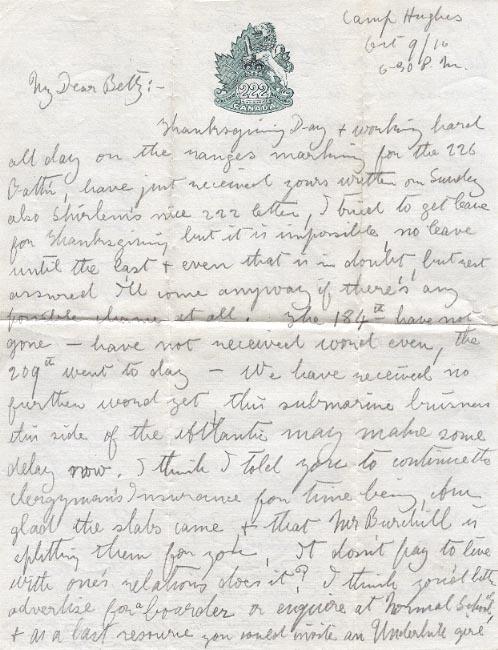 Camp Hughes
Oct 9/16
6-30 P.M.
222
CANADA
My Dear Betty:-
Thanksgiving Day & working hard
all day on the ranges marking for the 226
Battn, have just received yours written on Sunday
also Shirley's nice 222 letter, I tried to get leave
for Thanksgiving but it is impossible, no leave
until the last & even that is in doubt, but rest
assured I'll come anyway if there's any
possible chance at all. The 184th have not
gone - have not received word even, the
209th went to day - We have received no
further word yet, this submarine business
this side of the Atlantic may make some
delay now. I think I told you to continue the
Clergyman's Insurance for time being, Am
glad the slabs came & that Mr Burchill is
splitting them for you. It don't pay to live
with one's relations does it? I think you'd better
advertise for a boarder or enquire at Normal School,
& as a last resource you could invite an girl